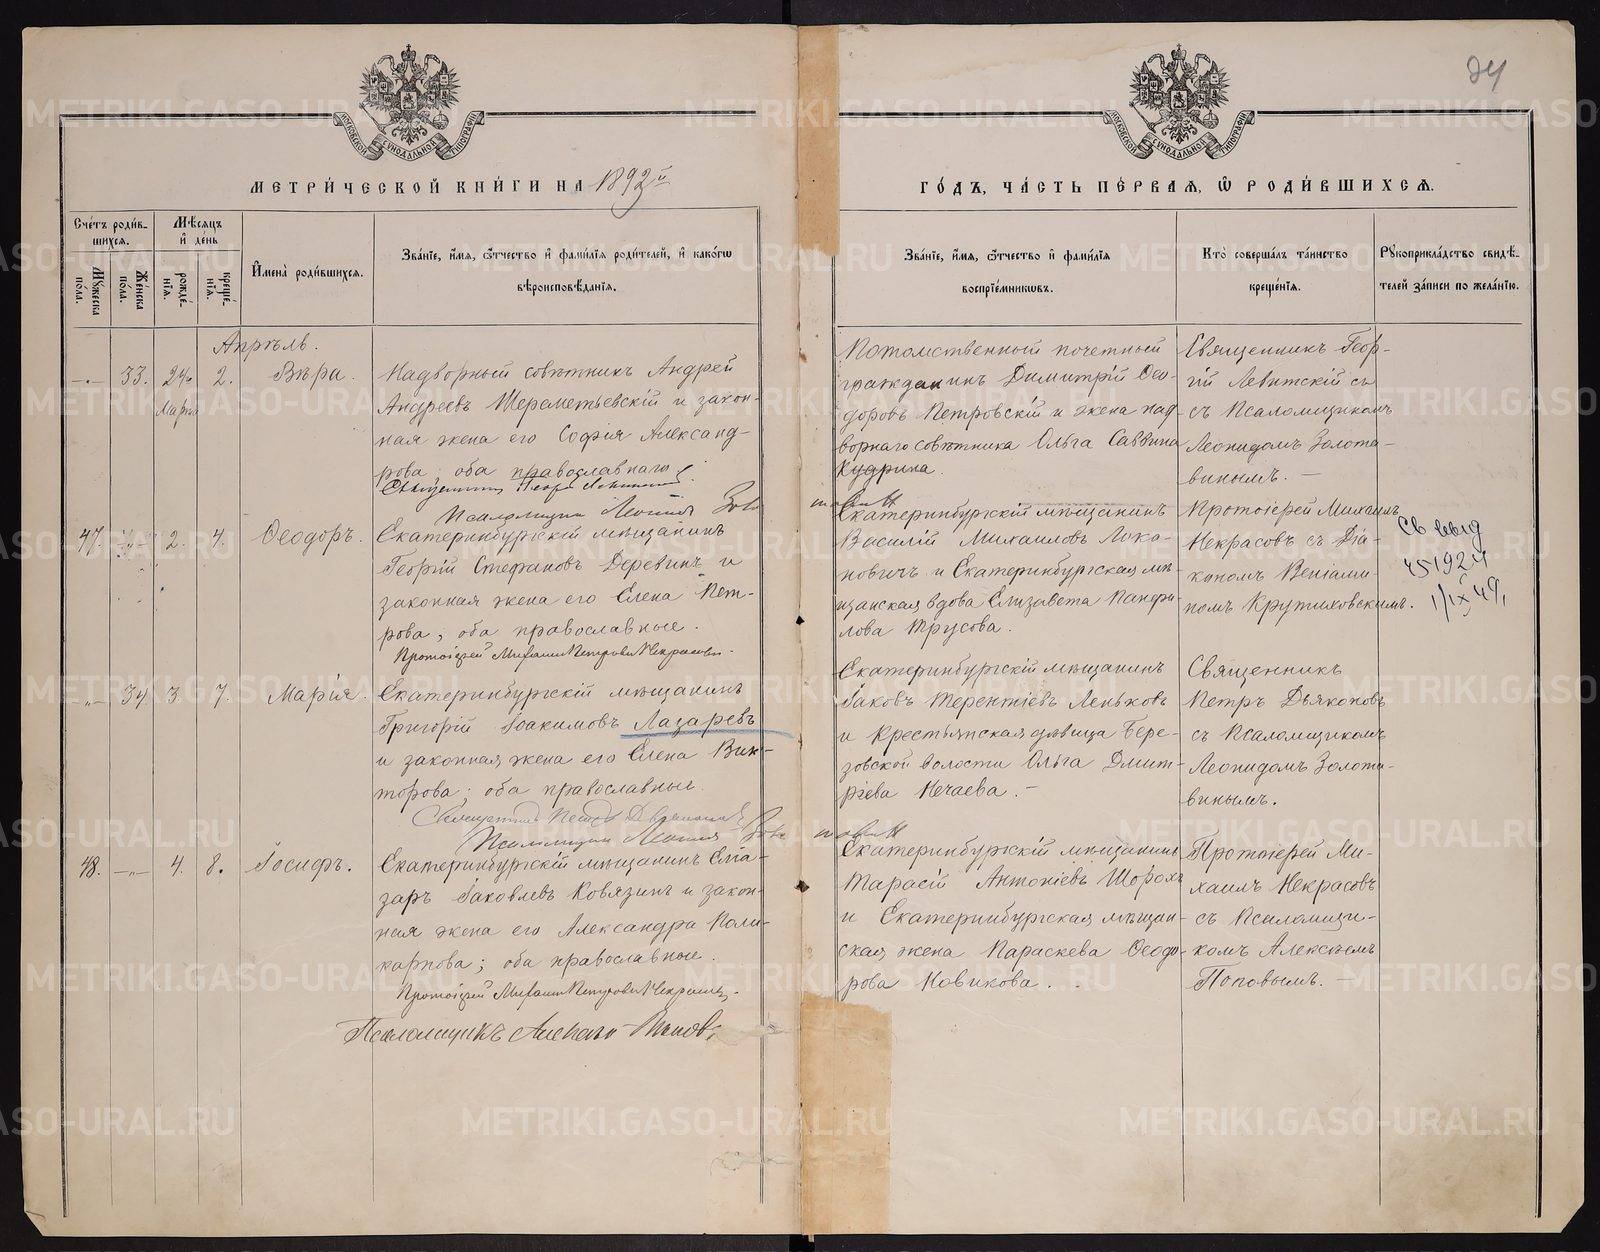 24
МОСКОВСКОЙ СѴНОДАЛЬНОЙ ТИПОГРАФІИ
МОСКОВСКОЙ СѴНОДАЛЬНОЙ ТИПОГРАФІИ
МЕТРИ́ЧЕСКОЙ КНИ́ГИ НА 1892й
ГО́ДЪ, ЧА́СТЬ ПЕ́РВАЯ, Ѡ РОДИ́ВШИХСЯ.
Сче́тъ роди́в-
шихся.
Мѣ́сяцъ
и де́нь
Му́жеска по́ла.
Же́нска по́ла.
рожде́-
нія.
креще́-
нія.
Имена̀ роди́вшихся.
Зва́ніе, и́мя, ѻ́тчество и фами́лія роди́телей, и како́гѡ
вѣроисповѣ́данія.
Зва́ніе, и́мя, ѻ́тчество и фами́лія
воспріе́мниковъ.
Кто̀ соверша́лъ та́инство
креще́нія.
Рꙋкоприкла́дство свидѣ́-
телей за́писи по жела́нію.
Апрѣль.
-"- 33. 24 2. Вѣра.
Марта
Надворный совѣтникъ Андрей
Андреевъ Шереметьевскій и закон-
ная жена его Софія Александ-
рова; оба православнаго
Священникъ Георгій Левитскій
Псаломщикъ Леонидъ Золо
тавинъ
Потомственный почетный
гражданинъ Димитрій Ѳео-
доровъ Петровскій и жена над-
ворнаго совѣтника Ольга Саввина
Кудрина.
Священникъ Геор-
гій Левитскій съ
съ Псаломщикомъ
Леонидомъ Золота-
винымъ. –
47. 2. 4. Ѳеодоръ.
Екатеринбургскій мѣщанинъ
Георгій Стефановъ Деревинъ и
законная жена его Елена Пет-
рова; оба православные.
Протоіерей Михаилъ Петровъ Некрасовъ.
Екатеринбургскій мѣщанинъ
Василій Михаиловъ Лока-
новичъ и Екатеринбургская мѣ-
щанская вдова Елизавета Панфи-
лова Трусова.
Протоіерей Михаилъ
Некрасовъ съ Діа-
кономъ Веніами-
номъ Крутиховскимъ.
Св выд
451924
1/IX 49
-"- 34. 3. 7. Марія.
Екатеринбургскій мѣщанинъ
Григорій Іоакимовъ Лазаревъ
и законная жена его Елена Вик-
торова; оба православные.
Священникъ Петръ Дьяконовъ
Псаломщикъ Леонидъ Золо
тавинъ
Екатеринбургскій мѣщанинъ
Іаковъ Терентіевъ Леньковъ
и Крестьянская дѣвица Бере-
зовской волости Ольга Дмит-
ріева Нечаева. –
Священникъ
Петръ Дьяконовъ
съ Псаломщикомъ
Леонидомъ Золота-
винымъ.
48. -"- 4. 8. Іосифъ.
Екатеринбургскій мѣщанинъ Елиа-
заръ Іаковлевъ Ковязинъ и закон-
ная жена его Александра Поли-
карпова; оба православные.
Протоіерей Михаилъ Петровъ Некрасовъ.
Псаломщикъ Алексѣй Поповъ.
Екатеринбургскій мѣщанинъ
Тарасій Антоніевъ Шорохъ
и Екатеринбургская мѣщан-
ская жена Параскева Ѳеодо-
рова Новикова.
Протоіерей Ми-
хаилъ Некрасовъ
съ Псаломщи-
комъ Алексѣемъ
Поповымъ. –
METRIKI.GASO-URAL.RU